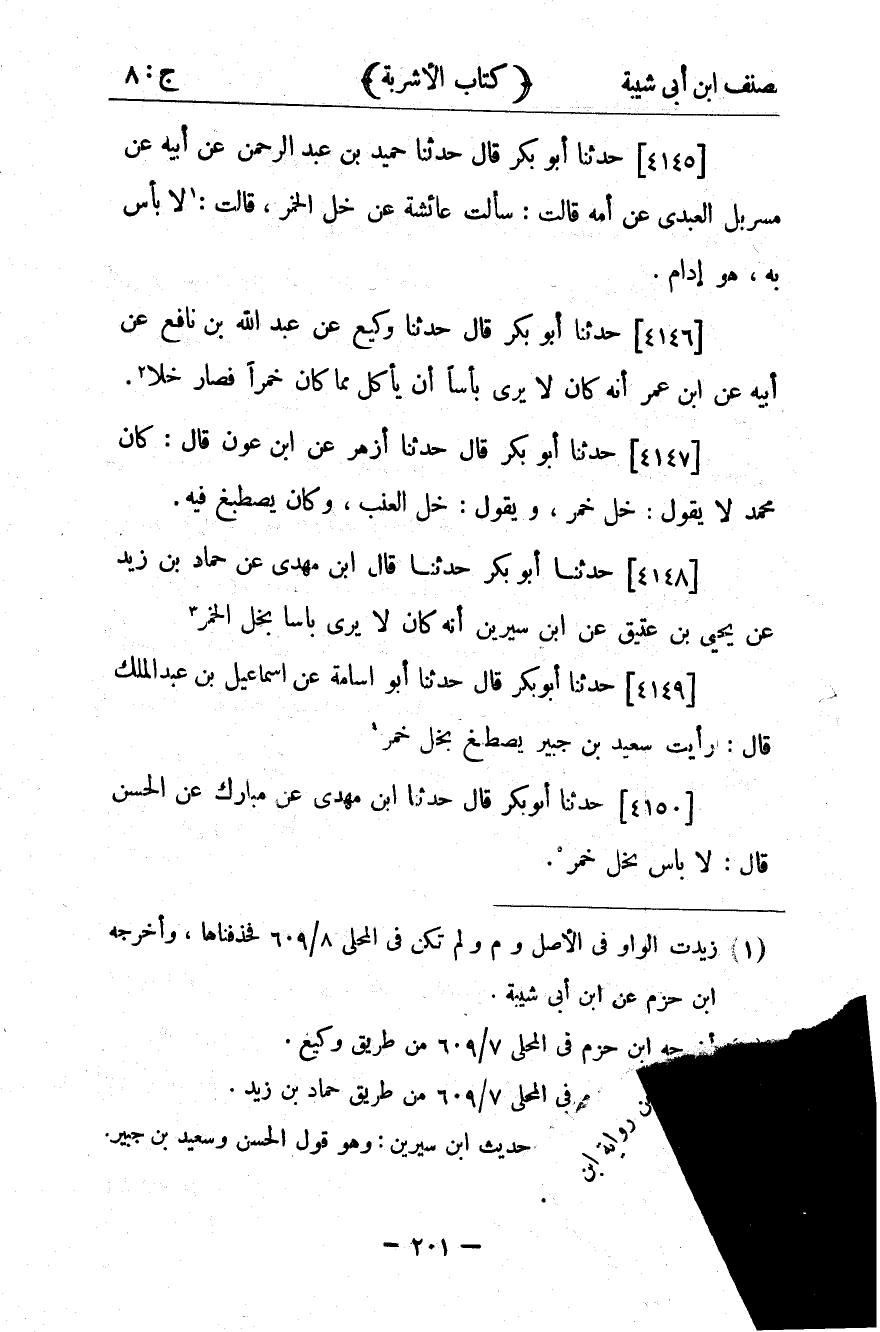 صنف ابن أبى شيبة ﴿ كتاب الأشربة ﴾ ج : ٨
[٤١٤٥] حدثنا أبو بكر قال حدثنا حميد بن عبد الرحمن عن أبيه عن
مسربل العبدى عن أمه قالت : سألت عائشة عن خل الخمر ، قالت :١ لا بأس
به ، هو إدام .
[٤١٤٦] حدثنا أبو بكر قال حدثنا وكيع عن عبد الله بن نافع عن
أبيه عن ابن عمر أنه كان لا يرى بأساً أن يأكل مما كان خمراً فصار خلا٢.
[٤١٤٧] حدثنا أبو بكر قال حدثنا أزهر عن ابن عون قال : كان
محمد لا يقول : خل خمر ، و يقول : خل العنب ، وكان يصطبغ فيه .
[٤١٤٨] حدثنا أبو بكر حدثنا قال ابن مهدى عن حماد بن زيد
عن يحيى بن عتيق عن ابن سيرين أنه كان لا يرى باسا بخل الخمر٣
[٤١٤٩] حدثنا أبوبكر قال حدثنا أبو اسامة عن اسماعيل بن عبدالملك
قال : رأيت سعيد بن جبير يصطبغ بخل خمر٤
[٤١٥٠] حدثنا أبوبكر قال حدثنا ابن مهدى عن مبارك عن الحسن
قال : لا باس بخل خمر٥.
(١) زيدت الواو فى الأصل و م و لم تكن فى المحلى ٦٠٩/٨ فحذفناها ، وأخرجه
ابن حزم عن ابن أبى شيبة .
حه ابن حزم فى المحلى ٦٠٩/٧ من طريق وكيغ .
م فى المحلى ٦٠٩/٧ من طريق حماد بن زيد .
ن رواية ابن
حديث ابن سيرين : وهو قول الحسن وسعيد بن جبير.
.
– ٢٠١ –